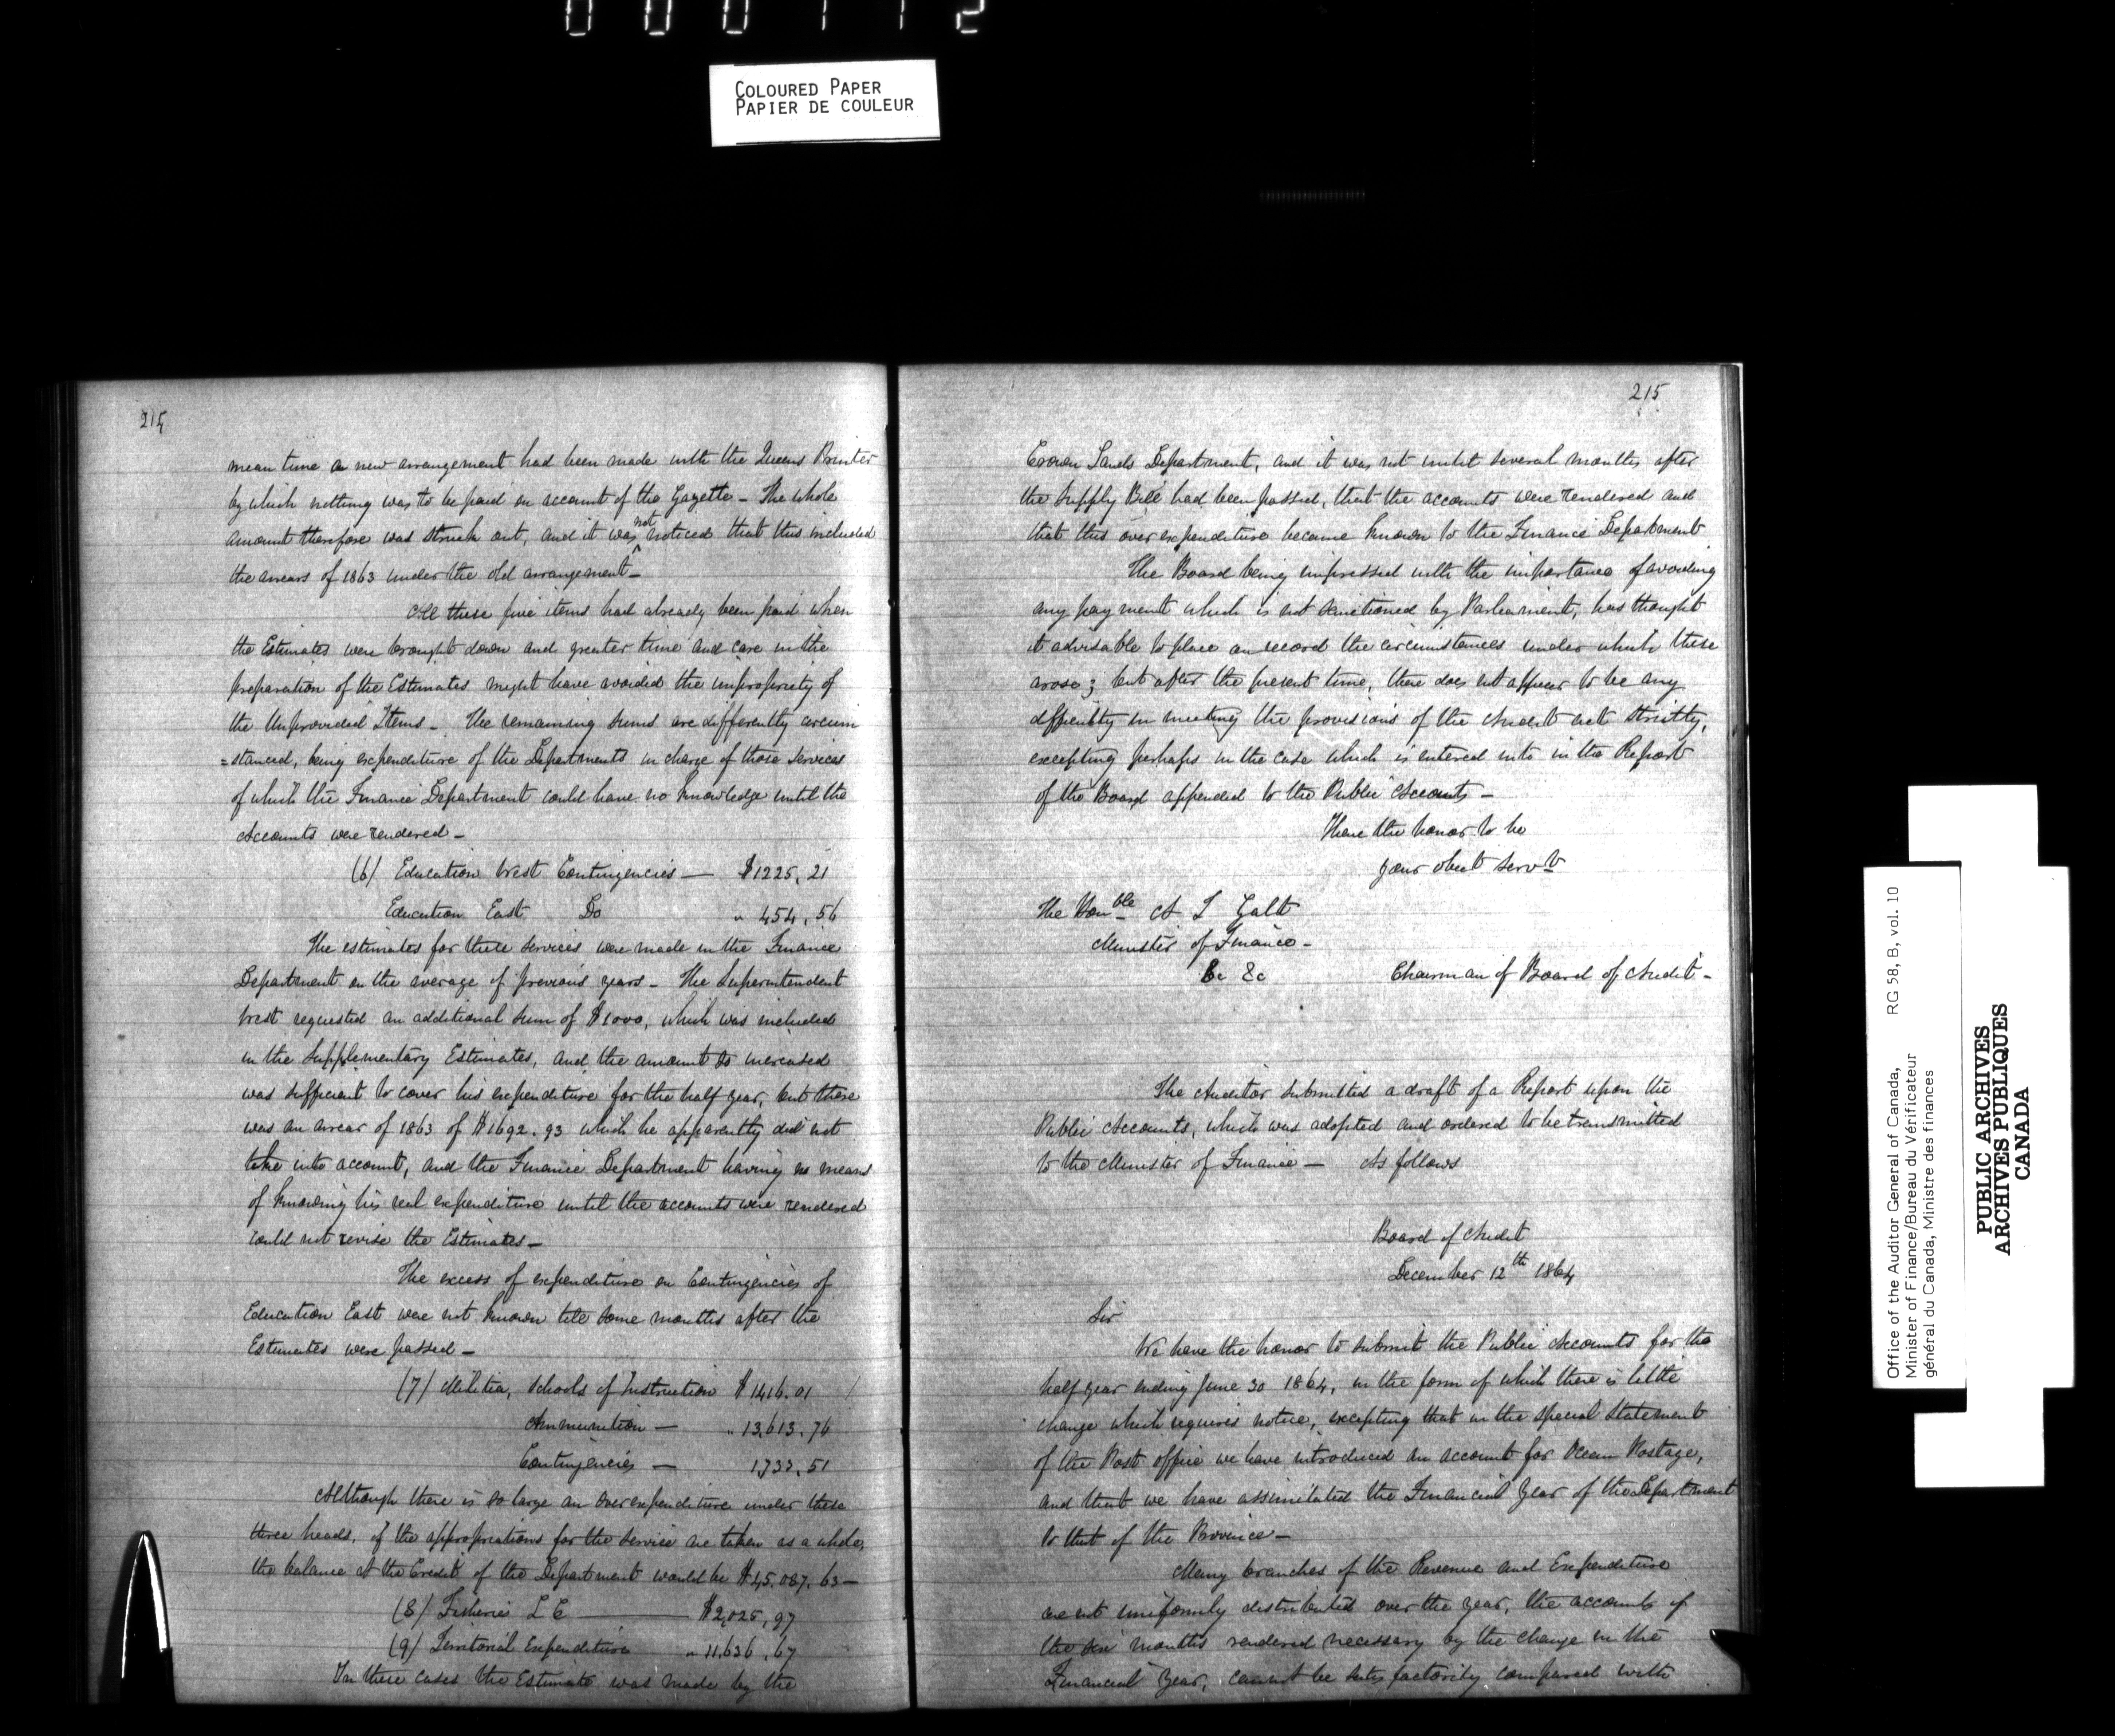 000112
COLOURED PAPER
PAPIER DE COULEUR
214
mean time a new arrangement had been made with the Queens Printer
by which nothing was to be paid on account of the Gazette - The whole
amount therefore was struck out, and it was not noticed that this included
the arrears of 1863 under the old arrangement -
All these five items had already been paid when
the Estimates were brought down and greater time and care in the
preparation of the Estimates might have avoided the impropriety of
the Unprovided Items - The remaining sums are differently circum
=stanced, being expenditure of the Departments in charge of those services
of which the Finance Department could have no knowledge until the
Accounts were rendered -
(6) Education West Contingencies — $1225.21
Education East Do " 454.56
The estimates for these services were made in the Finance
Department on the average of previous years - The Superintendent
West requested an additional sum of $1000, which was included
in the Supplementary Estimates, and the amount so increased
was sufficient to cover his expenditure for the half year, but there
was an arrear of 1863 of $1692.93 which he apparently did not
take into account, and the Finance Department having no means
of knowing his real expenditure until the accounts were rendered
could not revise the Estimates -
The excess of expenditure on Contingencies of
Education East were not known till some months after the
Estimates were passed -
(7) Militia, Schools of Instruction $1416.01
Ammunition — " 13,613.76
Contingencies — 1,732.51
Although there is so large an over expenditure under these
three heads, if the appropriations for the service are taken as a whole,
the balance at the Credit of the Department would be $45,087.63 —
(8) Fisheries L C — $2,025.97
(9) Territorial Expenditure " 11,636.67
In these cases the Estimate was made by the
215
Crown Lands Department, and it was not until several months after
the Supply Bill had been passed, that the accounts were rendered and
that this over expenditure became known to the Finance Department
The Board being impressed with the importance of avoiding
any payment which is not sanctioned by Parliament, has thought
it advisable to place on record the circumstances under which these
arose; but after the present time, there does not appear to be any
difficulty in meeting the provisions of the Audit act strictly,
excepting perhaps in the case which is entered into in the Report
of the Board appended to the Public Accounts -
I have the honor to be
your obedt servt
The Honble A T Galt
Minister of Finance -
&c &c
Chairman of Board of Audit -
The Auditor submitted a draft of a Report upon the
Public Accounts, which was adopted and ordered to be transmitted
to the Minister of Finance — As follows
Board of Audit
December 12th 1864
Sir
We have the honor to submit the Public Accounts for the
half year ending June 30 1864, in the form of which there is little
change which requires notice, excepting that in the special statement
of the Post office we have introduced an account for Ocean Postage,
and that we have assimilated the Financial Year of the Department
to that of the Province -
Many branches of the Revenue and Expenditure
are not uniformly distributed over the year, the accounts of
the six months rendered necessary by the change in the
Financial Year, cannot be satisfactorily compared with
Office of the Auditor General of Canada, RG 58, B, vol. 10
Minister of Finance/Bureau du Vérificateur
général du Canada, Ministre des finances
PUBLIC ARCHIVES
ARCHIVES PUBLIQUES
CANADA